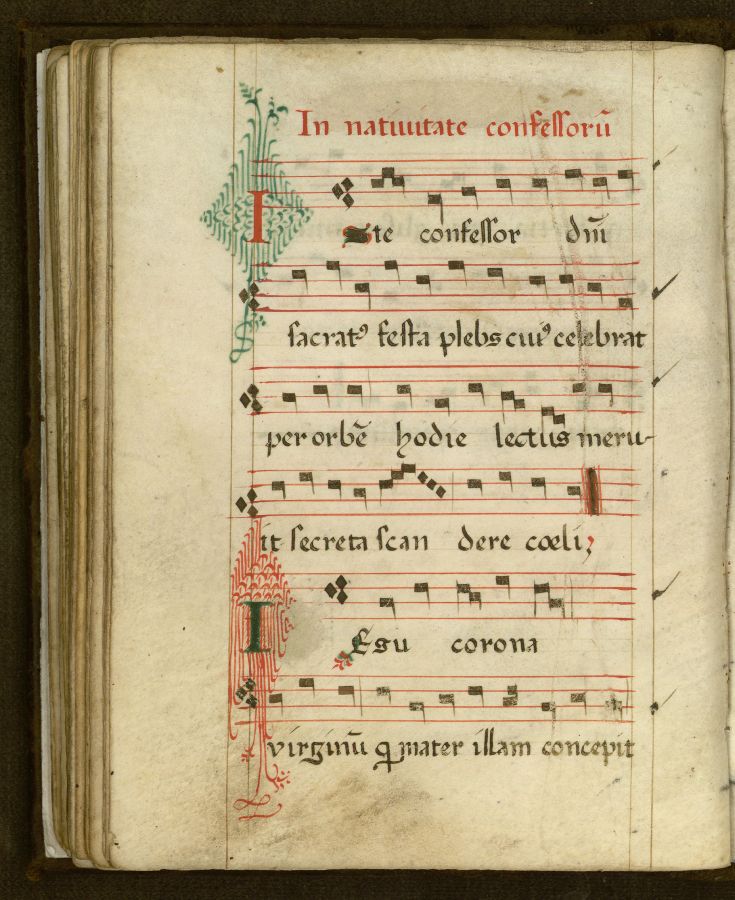 In natiuitate confessorū
Iste confessor dnī
sacratꝰ festa plebs cuiꝰ celebrat
per orbē hodie lectus meru-
it secreta scan dere cœli;
IEsu corona
virginū ꝙ mater illam concepit